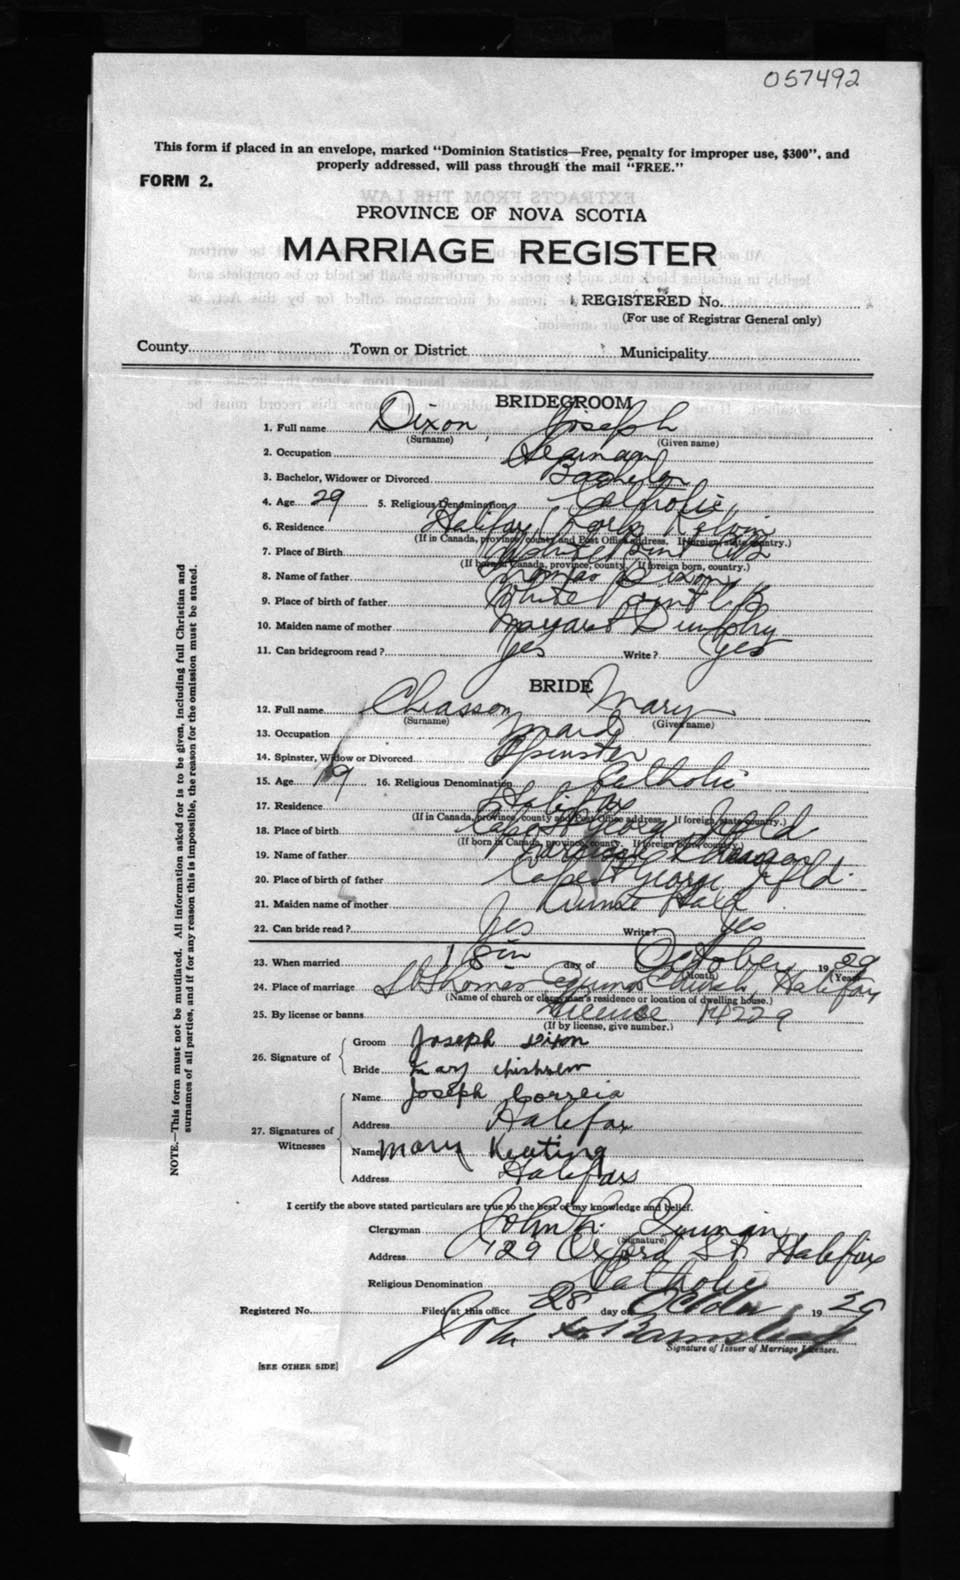 057492
This form if placed in an envelope, marked "Dominion Statistics—Free, penalty for improper use, $300", and
properly addressed, will pass through the mail "FREE."
FORM 2.
PROVINCE OF NOVA SCOTIA
MARRIAGE REGISTER
REGISTERED No.
(For use of Registrar General only)
County Town or District Municipality
BRIDEGROOM
1. Full name Dixon, Joseph
(Surname) (Given name)
2. Occupation Seaman
3. Bachelor, Widower or Divorced Bachelor
4. Age 29 5. Religious Denomination Catholic
6. Residence Halifax
(If in Canada, province, county and Post Office address. If foreign, state country.)
7. Place of Birth White Point CB
(If born in Canada, province, county. If foreign born, country.)
8. Name of father Thomas Dixon
9. Place of birth of father White Point C.B.
10. Maiden name of mother Margaret Dunphy
11. Can bridegroom read? Yes Write? Yes
BRIDE
12. Full name Chiasson Mary
(Surname) (Given name)
13. Occupation Maid
14. Spinster, Widow or Divorced Spinster
15. Age 19 16. Religious Denomination Catholic
17. Residence Halifax
(If in Canada, province, county and Post Office address. If foreign, state country.)
18. Place of birth Cape St George Nfld
(If born in Canada, province, county. If foreign born, country.)
19. Name of father
20. Place of birth of father Cape St George Nfld.
21. Maiden name of mother
22. Can bride read? Yes Write? Yes
23. When married 18th day of October 1929
(Month) (Year)
24. Place of marriage St Thomas Aquinas Church, Halifax
(Name of church or clergyman's residence or location of dwelling house.)
25. By license or banns License 14229
(If by license, give number.)
26. Signature of
Groom Joseph Dixon
Bride Mary
27. Signatures of Witnesses
Name Joseph Correia
Address Halifax
Name Mary Keating
Address Halifax
I certify the above stated particulars are true to the best of my knowledge and belief.
Clergyman John
(Signature)
Address 129 Oxford St. Halifax
Religious Denomination Catholic
Registered No. Filed at this office 28 day of October 1929
John
Signature of Issuer of Marriage Licenses.
[SEE OTHER SIDE]
NOTE.—This form must not be mutilated. All information asked for is to be given, including full Christian and
surnames of all parties, and if for any reason this is impossible, the reason for the omission must be stated.